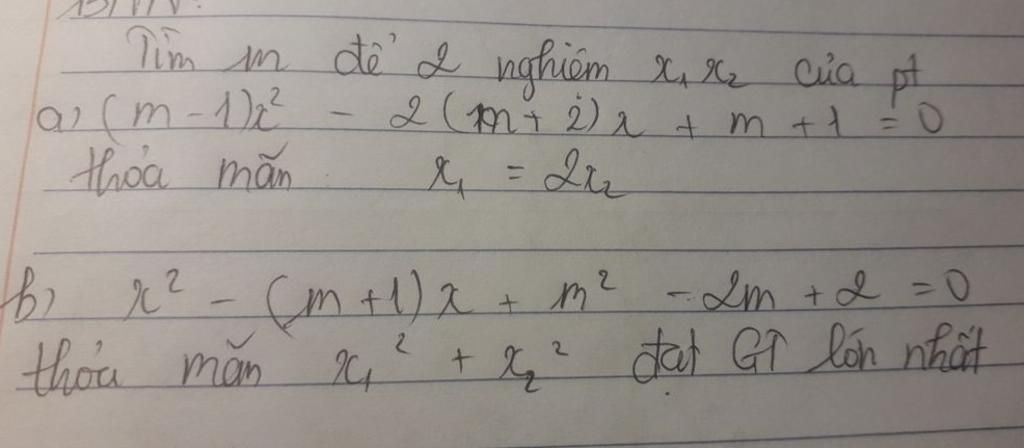 Tìm m để 2 nghiệm x₁ x₂ của pt
a) (m - 1)x² - 2(m + 2)x + m + 1 = 0
thỏa mãn x₁ = 2x₂
b) x² - (m + 1)x + m² - 2m + 2 = 0
thỏa mãn x₁² + x₂² đạt GT lớn nhất